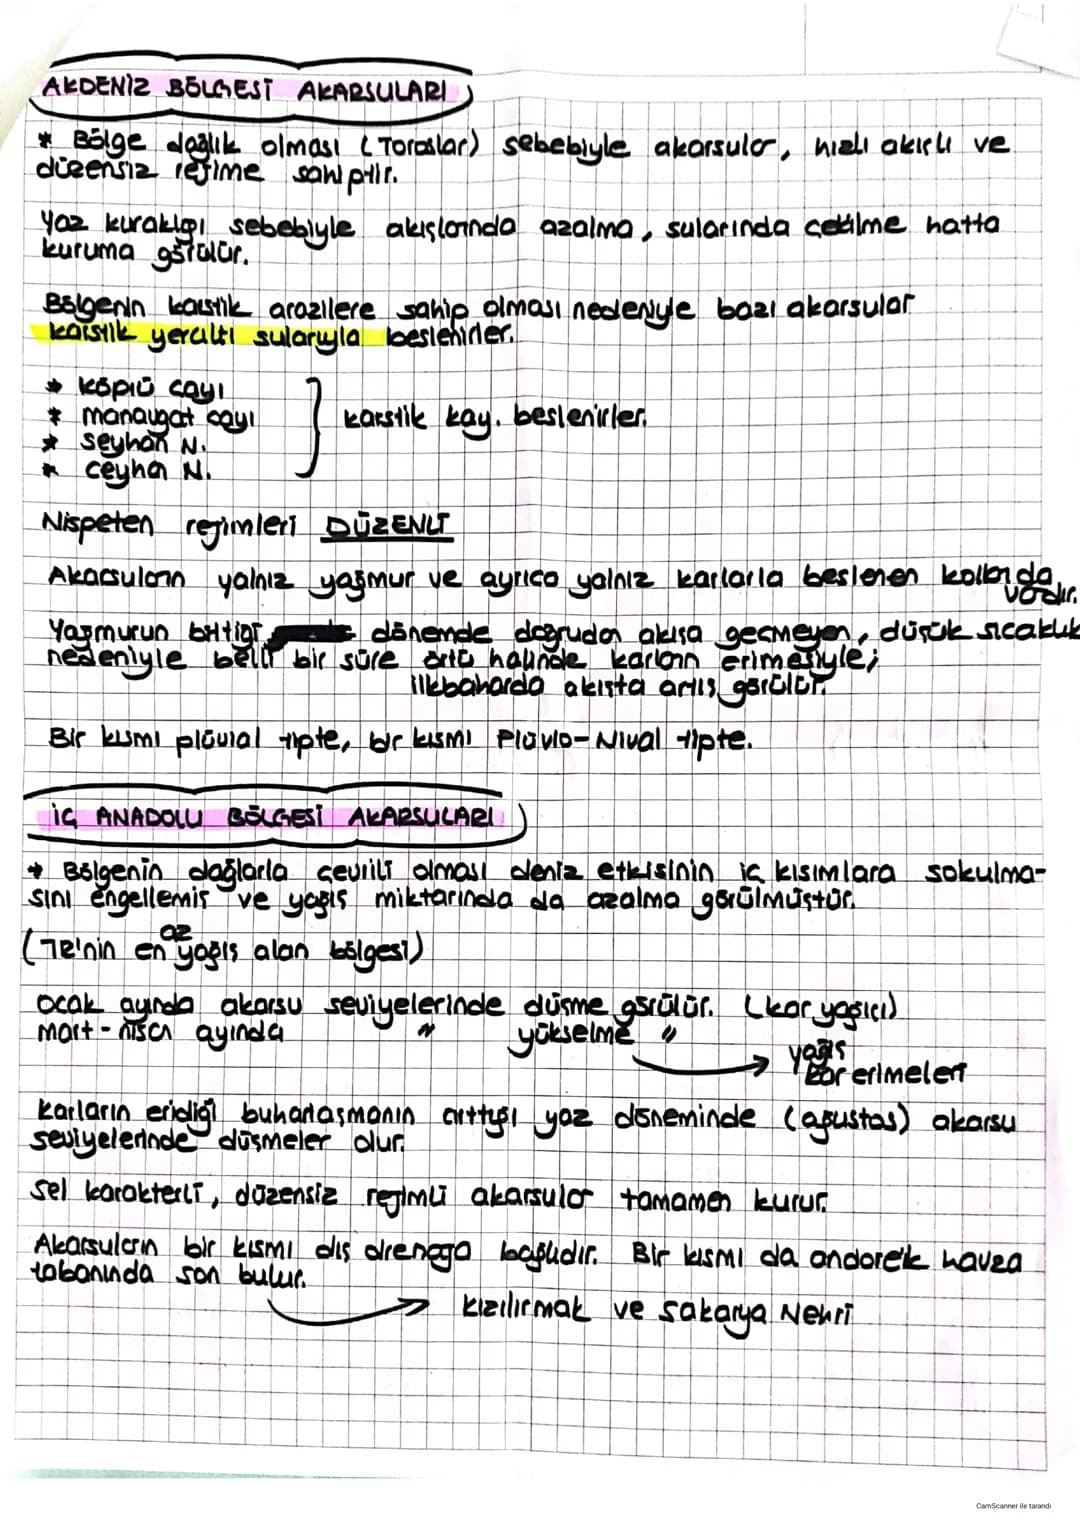 AKDENİZ BÖLGESİ AKARSULARI
* Bölge dağlık olması (Toroslar) sebebiyle akarsular, hızlı akışlı ve
düzensiz rejime sahiptir.
Yaz kuraklığı sebebiyle akışlarında azalma, sularında çekilme hatta
kuruma görülür.
Bölgenin karstik arazilere sahip olması nedeniyle bazı akarsular
karstik yeraltı sularıyla beslenirler.
* köprü çayı
* manavgat çayı
* seyhan N.
* ceyhan N.
karstik kay. beslenirler.
Nispeten rejimleri DÜZENLİ
Akarsuların yalnız yağmur ve ayrıca yalnız karlarla beslenen kolları da
vardır.
Yağmurun bittiği dönemde doğrudan akışa geçmeyen, düşük sıcaklık
nedeniyle belli bir süre örtü halinde karların erimesiyle;
ilkbaharda akışta artış görülür.
Bir kısmı plüvial tipte, bir kısmı Plüvio-Nival tipte.
İÇ ANADOLU BÖLGESİ AKARSULARI
* Bölgenin dağlarla çevrili olması deniz etkisinin iç kısımlara sokulma-
sını engellemiş ve yağış miktarında da azalma görülmüştür.
(TR'nin en az yağış alan bölgesi)
Ocak ayında akarsu seviyelerinde düşme görülür. (kar yağışı)
mart - nisan ayında " yükselme "
→ yağış
kar erimeleri
Karların eridiği buharlaşmanın arttığı yaz döneminde (ağustos) akarsu
seviyelerinde düşmeler olur.
Sel karakterli, düzensiz rejimli akarsular tamamen kurur.
Akarsuların bir kısmı dış drenaja bağlıdır. Bir kısmı da andoreik havza
tabanında son bulur.
→ Kızılırmak ve Sakarya Nehri
CamScanner ile tarandı